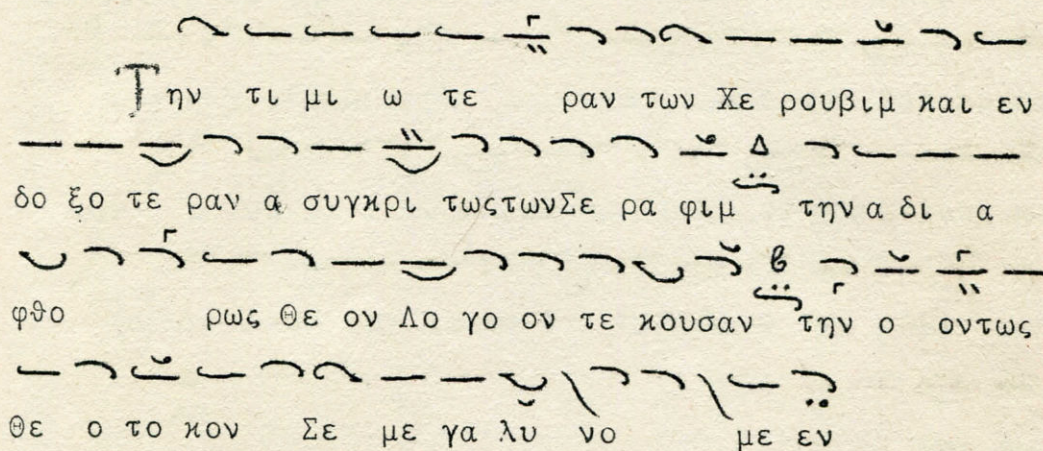 Την τι μι ω τε ραν των Χε ρουβιμ και εν
δο ξο τε ραν α συγκρι τωςτωνΣε ρα φιμ την α δι α
φθο ρως Θε ον Λο γο ον τε κουσαν την ο οντως
Θε ο το κον Σε με γα λυ νο με εν